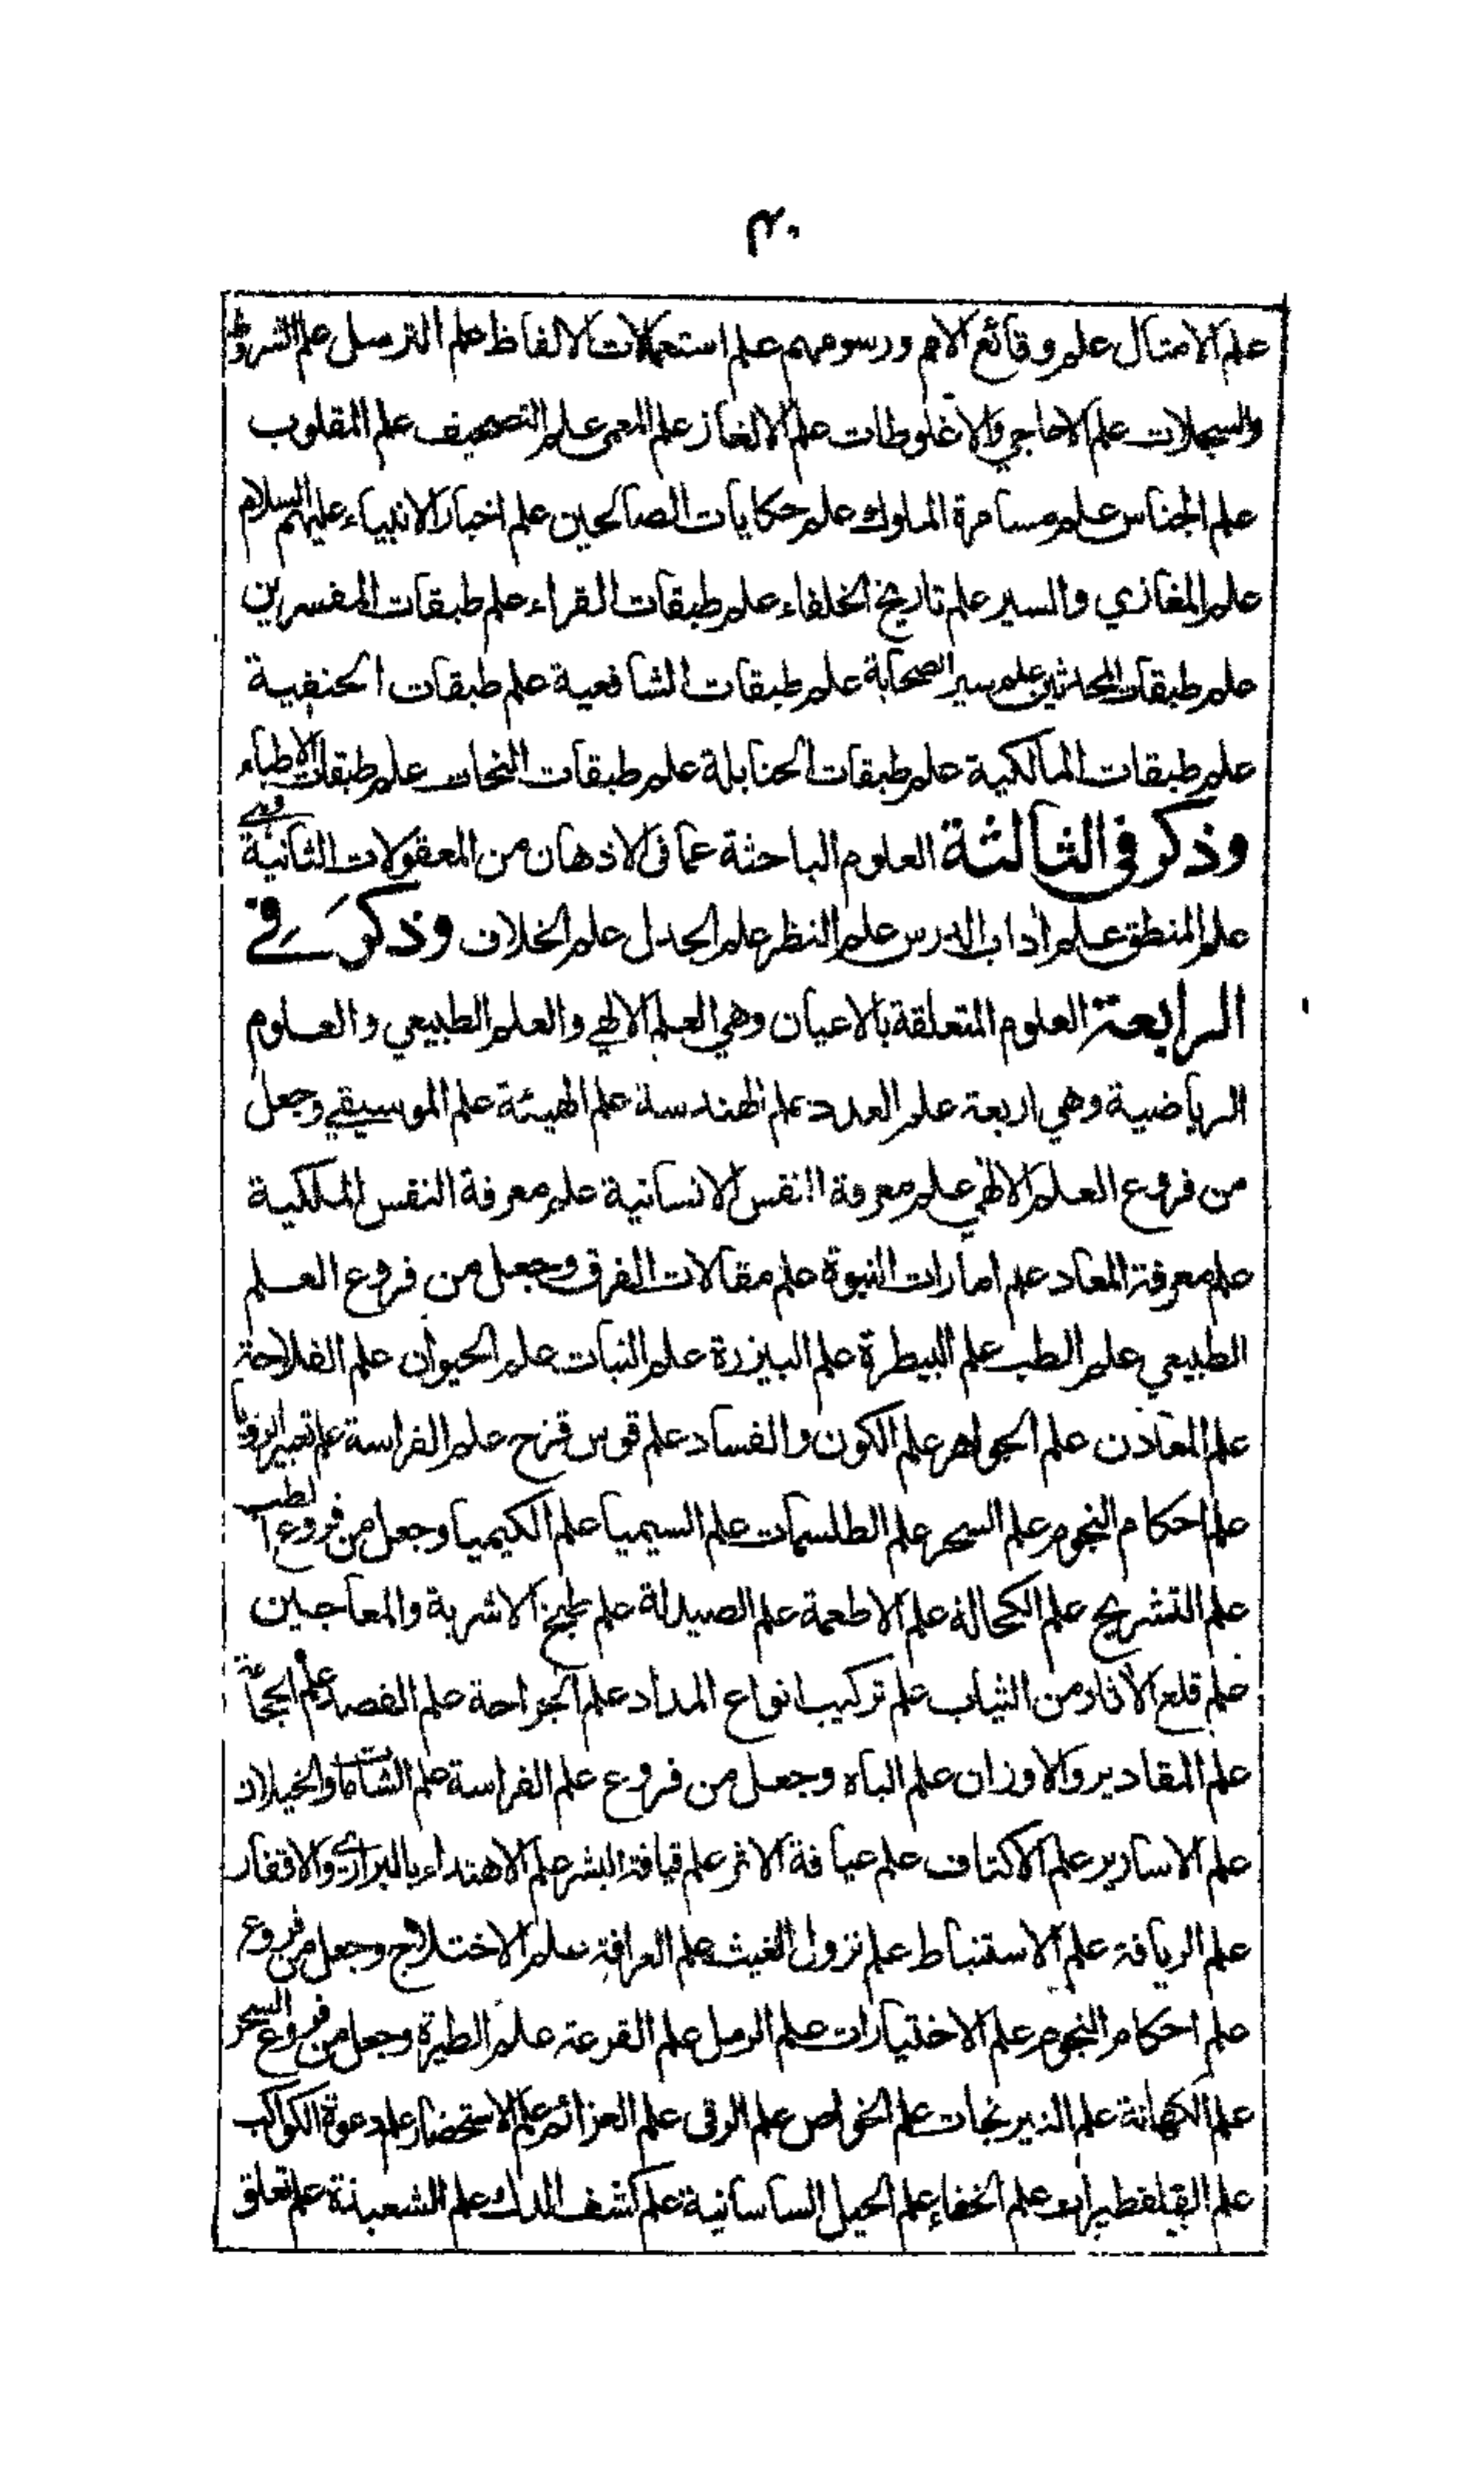 ٣٠
علم الامثال علم وقائع الامم ورسومهم علم استعمالات الالفاظ علم الترسل علم الشروط
والسجلات علم الاحاجي والاغلوطات علم الالغاز علم المعمى علم التصحيف علم المقلوب
علم الجناس علم مسامرة الملوك علم حكايات الصالحين علم اخبار الانبياء عليهم السلام
علم المغازي والسير علم تاريخ الخلفاء علم طبقات القراء علم طبقات المفسرين
علم طبقات المحدثين علم سير الصحابة علم طبقات الشافعية علم طبقات الحنفية
علم طبقات المالكية علم طبقات الحنابلة علم طبقات النحات علم طبقات الاطباء
وذكر في الثالثة العلوم الباحثة عما فى الاذهان من المعقولات الثانية وهي
علم المنطق علم اداب الدرس علم النظر علم الجدل علم الخلاف وذكر في
الرابعة العلوم المتعلقة بالاعيان وهي العلم الالهي والعلم الطبيعي والعلوم
الرياضية وهي اربعة علم العدد علم الهندسة علم الهيئة علم الموسيقي وجعل
من فروع العلم الالهي علم معرفة النفس الانسانية علم معرفة النفس الملكية
علم معرفة المعاد علم امارات النبوة علم مقالات الفرق وجعل من فروع العلم
الطبيعي علم الطب علم البيطرة علم البيزرة علم النبات علم الحيوان علم الفلاحة
علم المعادن علم الجواهر علم الكون والفساد علم قوس قزح علم الفراسة علم تعبير الرؤيا
علم احكام النجوم علم السحر علم الطلسمات علم السيميا علم الكيميا وجعل من فروع الطب
علم التشريح علم الكحالة علم الاطعمة علم الصيدلة علم طبخ الاشربة والمعاجين
علم قلع الاثار من الثياب علم تركيب انواع المداد علم الجراحة علم الفصد علم الحجامة
علم المقادير والاوزان علم الباه وجعل من فروع علم الفراسة علم الشامات والخيلان
علم الاسارير علم الاكتاف علم عيافة الاثر علم قيافة البشر علم الاهتداء بالبراري والاقفار
علم الريافة علم الاستنباط علم نزول الغيث علم العرافة علم الاختلاج وجعل من فروع
علم احكام النجوم علم الاختيارات علم الرمل علم القرعة علم الطيرة وجعل من فروع السحر
علم الكهانة علم النيرنجات علم الخواص علم الرقى علم العزائم علم الاستحضار علم دعوة الكواكب
علم القيلفطيرات علم الخفاء علم الحيل الساسانية علم كشف الدك علم الشعبذة علم تعلق